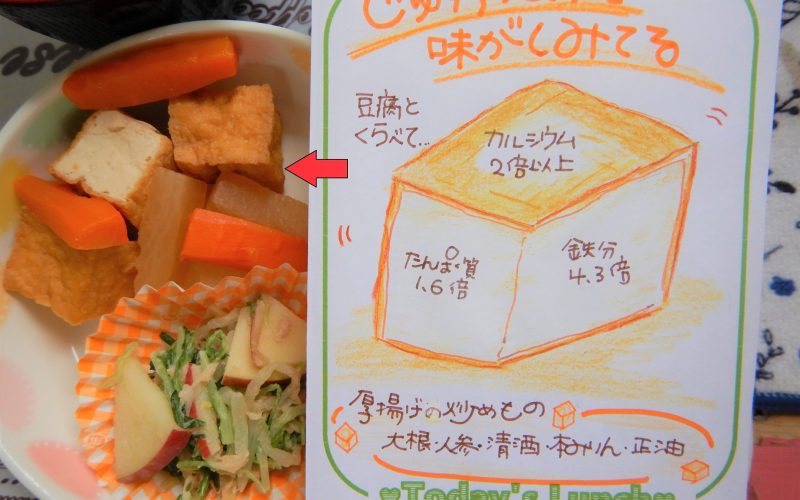 味がしみてる
豆腐と
くらべて…
カルシウム
2倍以上
たんぱく質
1.6倍
鉄分
4.3倍
厚揚げの炒めもの
大根・人参・清酒・本みりん・正油
♥Today's Lunch♥